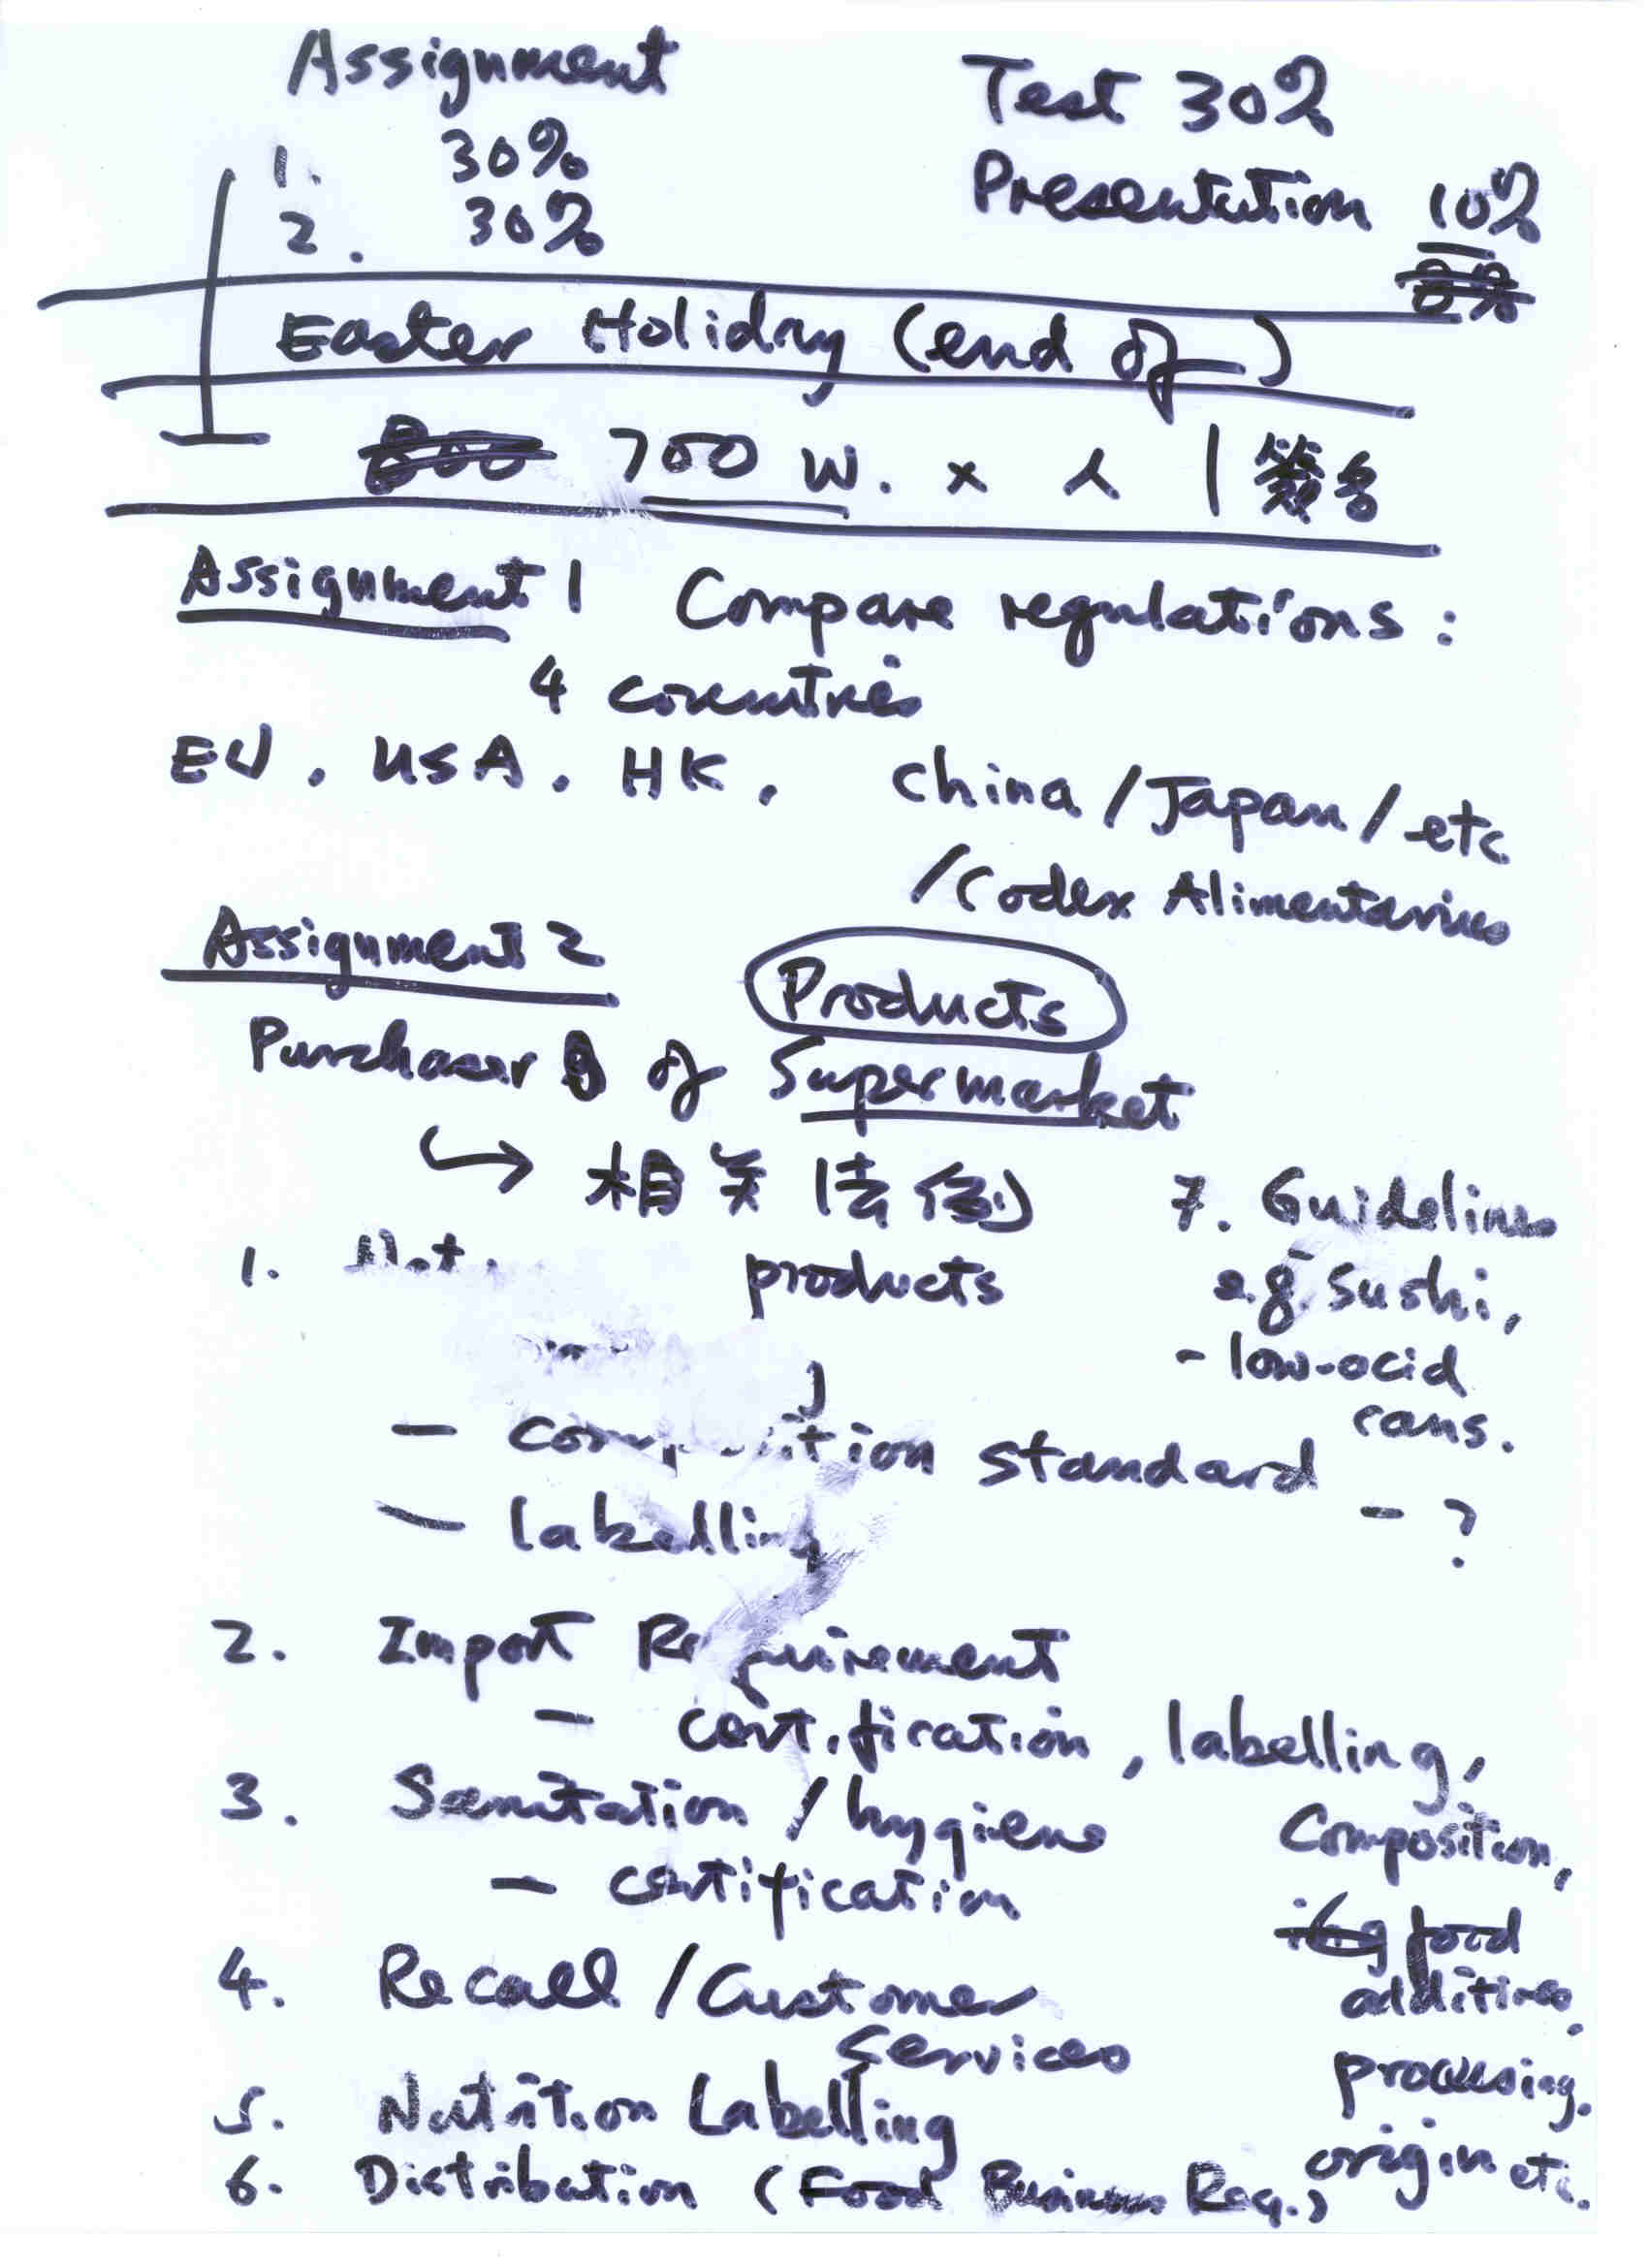 Assignment
1. 30%
2. 30%
Test 30%
Presentation 10%
Easter Holiday (end of)
800 700 W. × 人 | 簽名
Assignment 1 Compare regulations:
4 countries
EU, USA, HK, China / Japan / etc
/ Codex Alimentarius
Assignment 2
Products
Purchaser of Supermarket
↪ 相关法例
1. products
- standard
- labelling
2. Import Requirement
- certification, labelling,
Composition,
food
additives,
processing,
origin etc.
3. Sanitation / hygiene
- certification
4. Recall / Customer
Services
5. Nutrition Labelling
6. Distribution (Food Business Req.)
7. Guidelines
e.g. Sushi,
- low-acid
cans.
- ?